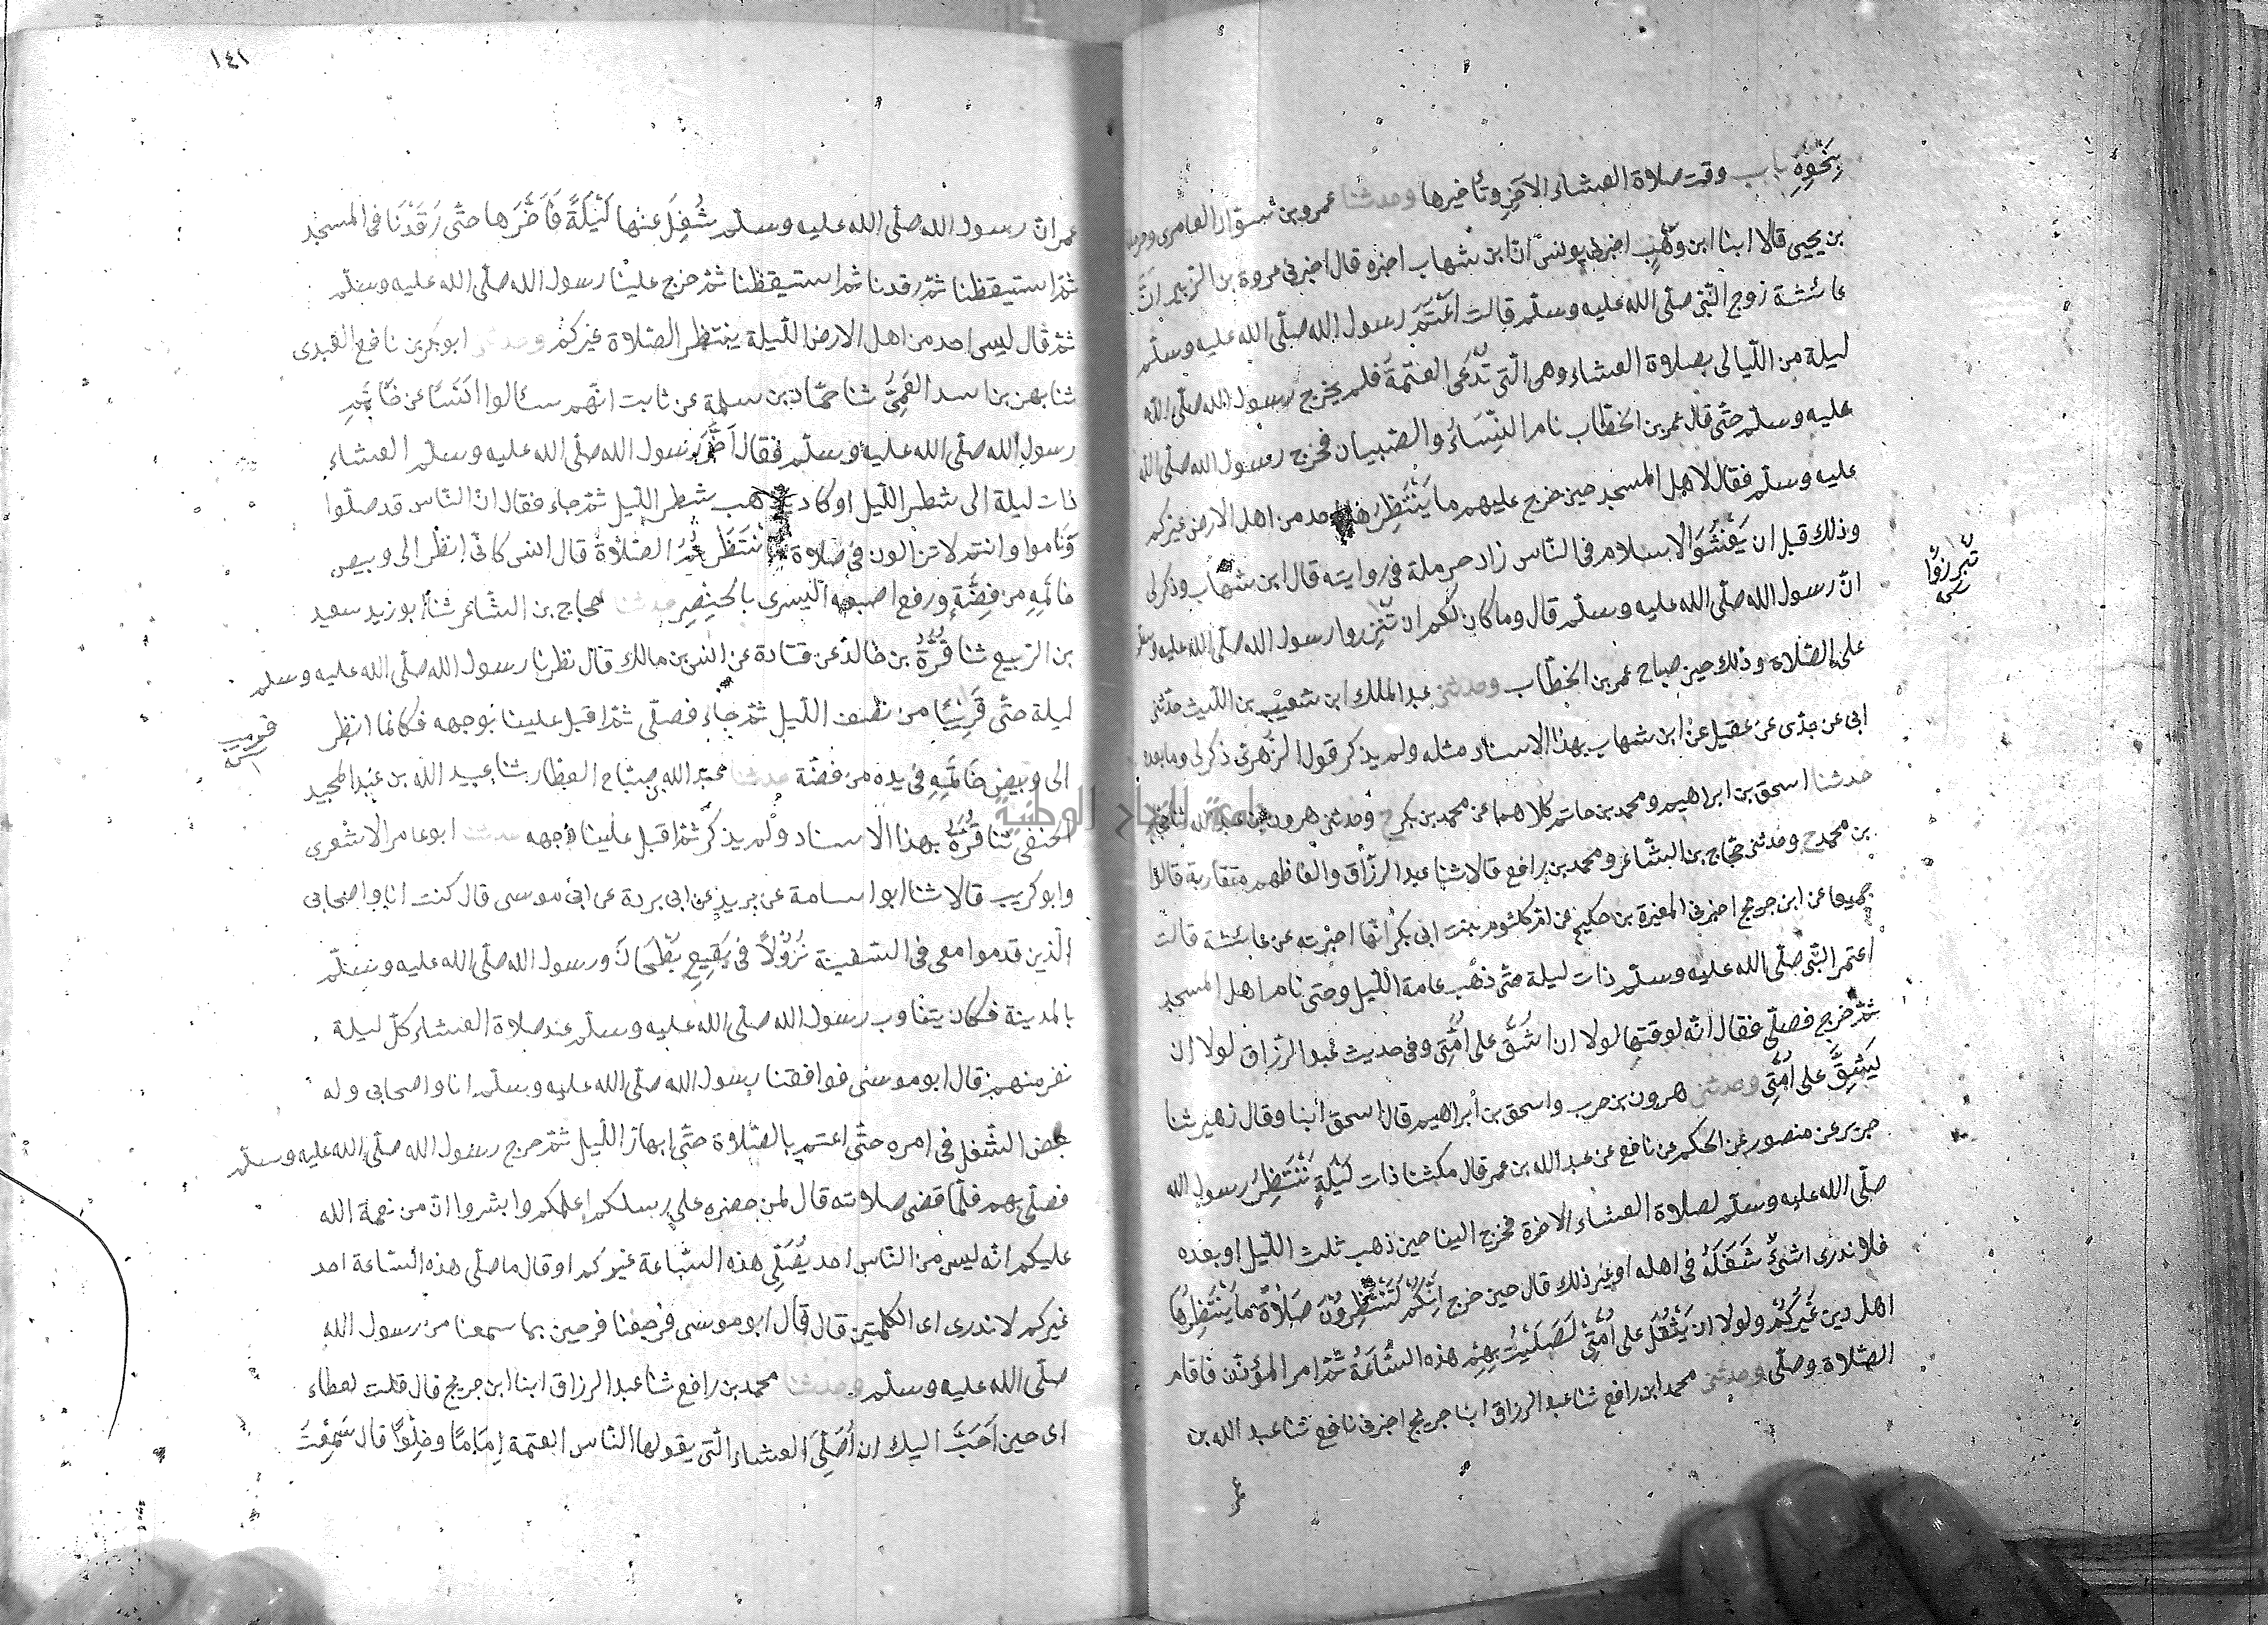 بِنَحْوِهِ باب وقت صلاة العشاء الآخرة وتأخيرها وحدثنا عمرو بن سوّاد العامرى وحرملة
بن يحيى قالا ابنا ابن وَهْبٍ اخبرنى يونس انّ ابن شهاب اخبره قال اخبرنى عروة بن الزبير انّ
عائشة زوج النّبى صلّى الله عليه وسلّم قالت اَعْتَمَ رسول الله صلّى الله عليه وسلّم
ليلة من اللّيالى بصلاة العشاء وهى الّتى تُدْعَى العتمة فلم يخرج رسول الله صلّى الله
عليه وسلّم حتّى قال عمر بن الخطّاب نام النِّسَاءُ والصّبيان فخرج رسول الله صلّى الله
عليه وسلّم فقال لاهل المسجد حين خرج عليهم ما يَنْتَظِرُهَا احد من اهل الارض غيركم
وذلك قبل ان يَفْشُوَ الاسلام فى النّاس زاد حرملة فى روايته قال ابن شهاب وذكر لى
انّ رسول الله صلّى الله عليه وسلّم قال وما كان لكم ان تَنْزروا رسول الله صلّى الله عليه وسلم
على الصّلاة وذلك حين صاح عمر بن الخطّاب وحدثنى عبد الملك ابن شعيب بن اللّيث حدّثنى
ابى عن جدّى عن عقيل عن ابن شهاب بهذا الاسناد مثله ولم يذكر قول الزّهرىّ ذكر لى وما بعده
حدثنا اسحق بن ابراهيم ومحمد بن حاتم كلاهما عن محمد بن بكر ح وحدثنى هرون بن عبد الله ثنا حجّاج
بن محمد ح وحدثنى حجّاج بن الشّاعر ومحمد بن رافع قالا ثنا عبد الرزّاق والفاظهم متقاربة قالوا
جميعا عن ابن جريج اخبرنى المغيرة بن حكيم عن امّ كلثوم بنت ابى بكر انّها اخبرته عن عائشة قالت
اعتم النّبى صلّى الله عليه وسلّم ذات ليلة حتّى ذهب عامة اللّيل وحتى نام اهل المسجد
ثمّ خرج فصلّى فقال انّه لوقتها لولا ان اشُقَّ على اُمّتِى وفى حديث عبد الرّزاق لولا ان
يَشُقَّ على اُمّتِى وحدثنى هرون بن حرب واسحق بن ابراهيم قال اسحق ابنا وقال زهير ثنا
جرير عن منصور عن الحكم عن نافع عن عبد الله بن عمر قال مكثنا ذات لَيْلَةٍ نَنْتَظِرُ رسول الله
صلّى الله عليه وسلّم لصلاة العشاء الاخرة فخرج الينا حين ذهب ثلث اللّيل او بعده
فلا ندرى اشىْءٌ شَغَلَهُ فى اهله او غير ذلك قال حين خرج اِنَّكُمْ لَتَنْتَظِرُوْنَ صَلَاةً مَا يَنْتَظِرُهَا
اهل دين غَيْرَكُمْ ولولا ان يَثْقُلَ على اُمّتِىْ لَصَلَّيْتُ بِهِمْ هذه السَّاعَةَ ثمّ امر المؤذّن فاقام
الصّلاة وصلّى وحدثنى محمد ابن رافع ثنا عبد الرزاق ابنا جريج اخبرنى نافع ثنا عبد الله بن
عمر
تَبْرزُوْا
١٤١
عمر انّ رسول الله صلّى الله عليه وسلّم شُغِلَ عنها لَيْلَةً فَاَخَّرَها حتّى رَقَدْنَا فى المسجد
ثمّ استيقظنا ثمّ رقدنا ثمّ استيقظنا ثمّ خرج علينا رسول الله صلّى الله عليه وسلّم
ثمّ قال ليس احد من اهل الارض اللّيلة ينتظر الصّلاة غيركم وحدثنى ابو بكر بن نافع العبدى
ثنا بهز بن اسد العَمِّىُّ ثنا حمّاد بن سلمة عن ثابت انّهم سألوا اَنَسًا عن خَاتَمِ
رسول الله صلّى الله عليه وسلّم فقال اَخَّرَ رسول الله صلّى الله عليه وسلّم العشاء
ذات ليلة الى شطر اللّيل او كاد يذهب شطر اللّيل ثمّ جاء فقال انّ النّاس قد صلّوا
وَنَاموا وانتم لا تزالون فى صلاة ما انْتَظَرْتُمُ الصّلاة قال انس كانّى انظر الى وبيص
خاتَمِهِ من فِضَّةٍ ورفع اصبعه اليسرى بالخِنْصِرِ حدثنا حجاج بن الشّاعر ثنا ابو زيد سعيد
بن الرّبيع ثنا قُرَّةُ بن خالد عن قتادة عن انس بن مالك قال نظرنا رسول الله صلّى الله عليه وسلم
ليلة حتّى قَرِيْبًا من نصف اللّيل ثمّ جاء فصلّى ثمّ اقبل علينا بوجهه فكانّما انظر
قريب
الى وبيض خَاتَمِهِ فى يده من فضّة حدثنا عبد الله بن صبّاح العطار ثنا عبيد الله بن عبد المجيد
الحنفى ثنا قُرَّةُ بهذا الاسناد ولم يذكر ثمّ اقبل علينا وجهه حدثنا ابو عامر الاشعرى
وابو كريب قالا ثنا ابو اسامة عن بريد عن ابى بردة عن ابى موسى قال كنت انا واصحابى
الّذين قدموا معى فى السّفينة نُزُوْلًا فى بَقِيعِ بُطْحَانَ ورسول الله صلّى الله عليه وسلّم
بالمدينة فكان يتناوب رسول الله صلّى الله عليه وسلّم عند صلاة العشاء كلّ ليلة
نفر منهم قال ابو موسى فوافقنا رسول الله صلّى الله عليه وسلّم انا واصحابى وله
بعض الشّغل فى امره حتّى اعتم بالصّلاة حتّى ابهارّ اللّيل ثمّ خرج رسول الله صلّى الله عليه وسلّم
فصلّى بهم فلمّا قضى صلاته قال لمن حضره على رسلكم اعلمكم وابشروا انّ من نعمة الله
عليكم انّه ليس من النّاس احد يُصَلِّى هذه السّاعة غيركم او قال ما صلّى هذه السّاعة احد
غيركم لا ندرى اى الكلمتين قال قال ابو موسى فرجعنا فرحين بما سمعنا من رسول الله
صلّى الله عليه وسلّم وحدثنا محمد بن رافع ثنا عبد الرزاق ابنا ابن جريج قال قلت لعطاء
اى حين اَحَبُّ اليك ان اُصَلِّىَ العشاء الّتى يقولها النّاس العتمة اِمَامًا وخِلْوًا قال سَمِعْتُ
جامعة النجاح الوطنية